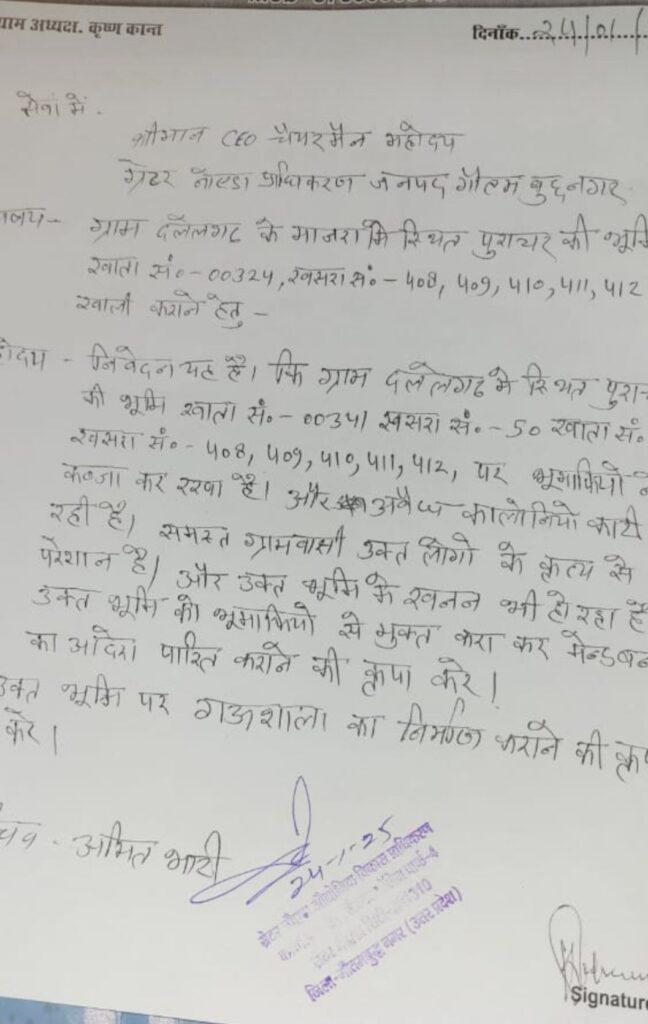 ग्राम अध्यक्ष. कृष्ण कान्त
दिनाँक...24/01/
सेवा में.
श्रीमान CEO चैयरमैन महोदय
ग्रेटर नोएडा प्राधिकरण जनपद गौतम बुद्धनगर
ग्राम दलेलगढ के माजरा में स्थित पुराचर की भूमि
खाता सं०-00324, खसरा सं०-408, 409, 410, 411, 412
खाली कराने हेतु -
निवेदन यह है। कि ग्राम दलेलगढ में स्थित
की भूमि खाता सं०-00341 खसरा सं०-50 खाता सं०
खसरा सं०-408, 409, 410, 411, 412, पर भूमाफियो
कब्जा कर रखा है। और अवैध कालोनियो काटी
रही है। समस्त ग्रामवासी उक्त लोगो के कृत्य से
परेशान है। और उक्त भूमि के खनन भी हो रहा है
उक्त भूमि को भूमाफियो से मुक्त करा कर
का आदेश पारित कराने की कृपा करे।
उक्त भूमि पर गऊशाला का निर्माण कराने की
करे।
अमित भाटी
24-1-25
ग्रेटर नोएडा औद्योगिक विकास प्राधिकरण
जिला-गौतमबुद्ध नगर (उत्तर प्रदेश)
Signature